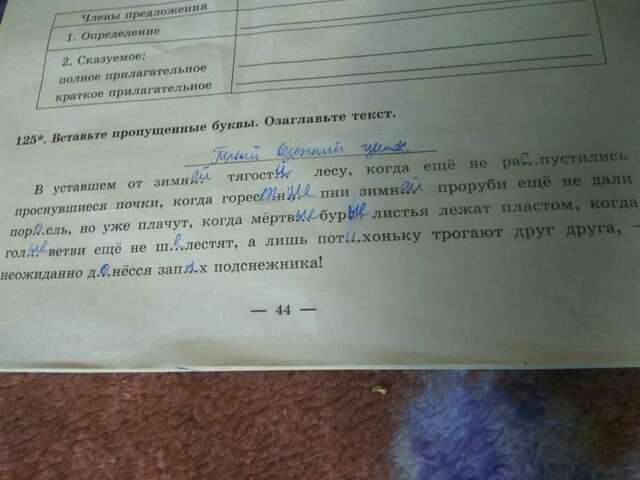 Члены предложения
1. Определение
2. Сказуемое:
полное прилагательное
краткое прилагательное
125*. Вставьте пропущенные буквы. Озаглавьте текст.
Первый весенний цветок
В уставшем от зимней тягости лесу, когда ещё не рас..пустились
проснувшиеся почки, когда горестные пни зимней проруби ещё не дали
поросль, но уже плачут, когда мёртвые бурые листья лежат пластом, когда
голые ветви ещё не шелестят, а лишь потихоньку трогают друг друга, -
неожиданно донёсся запах подснежника!
— 44 —